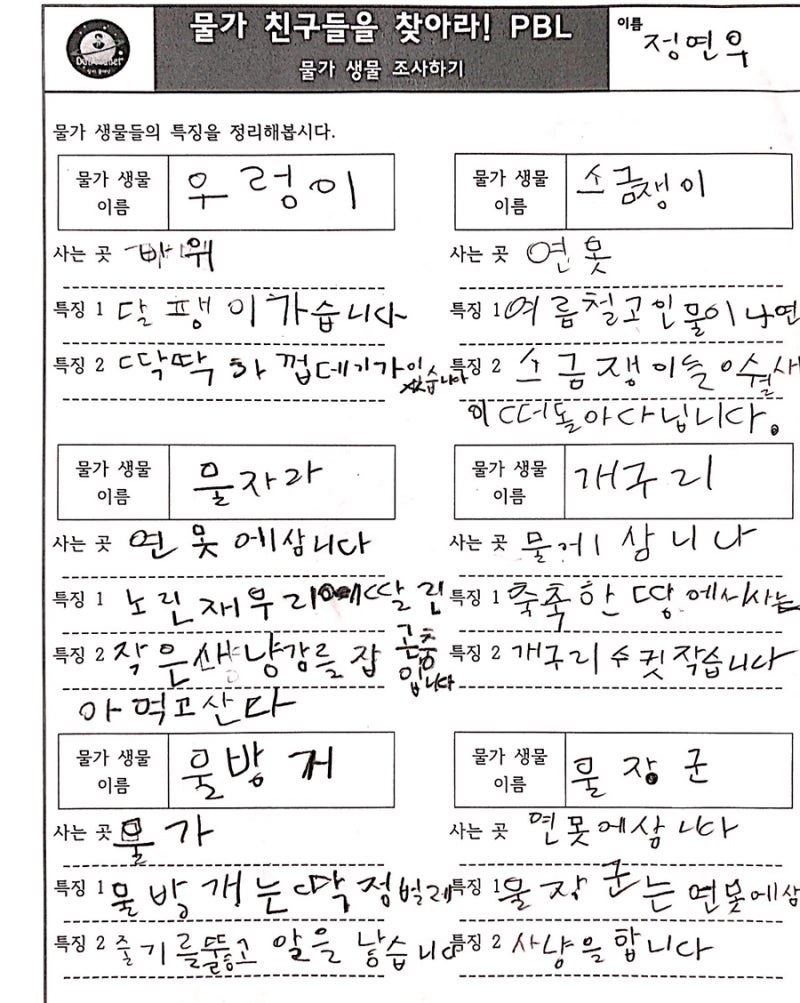 물가 친구들을 찾아라! PBL
이름
정연우
물가 생물 조사하기
물가 생물들의 특징을 정리해봅시다.
물가 생물 이름 우렁이
사는 곳 바위
특징 1 달팽이가습니다
특징 2 딱딱하 껍데기가있습니다
물가 생물 이름 소금쟁이
사는 곳 연못
특징 1 여름철고인물이나연
특징 2 소금쟁이들이쉴새
이떠돌아다닙니다.
물가 생물 이름 물자라
사는 곳 연못에삼니다
특징 1 노린재무리에딸린
곤충
입니다
특징 2 작은생냥감를잡
아먹고산다
물가 생물 이름 개구리
사는 곳 물게삼니나
특징 1 축축한땅에서사는
특징 2 개구리수컷작습니다
물가 생물 이름 물방개
사는 곳 물가
특징 1 물방개는딱정벌레
특징 2 줄기를뚫고 알을 낳습니다
물가 생물 이름 물장군
사는 곳 연못에삼니다
특징 1 물장군는연못에삼
특징 2 사냥을합니다